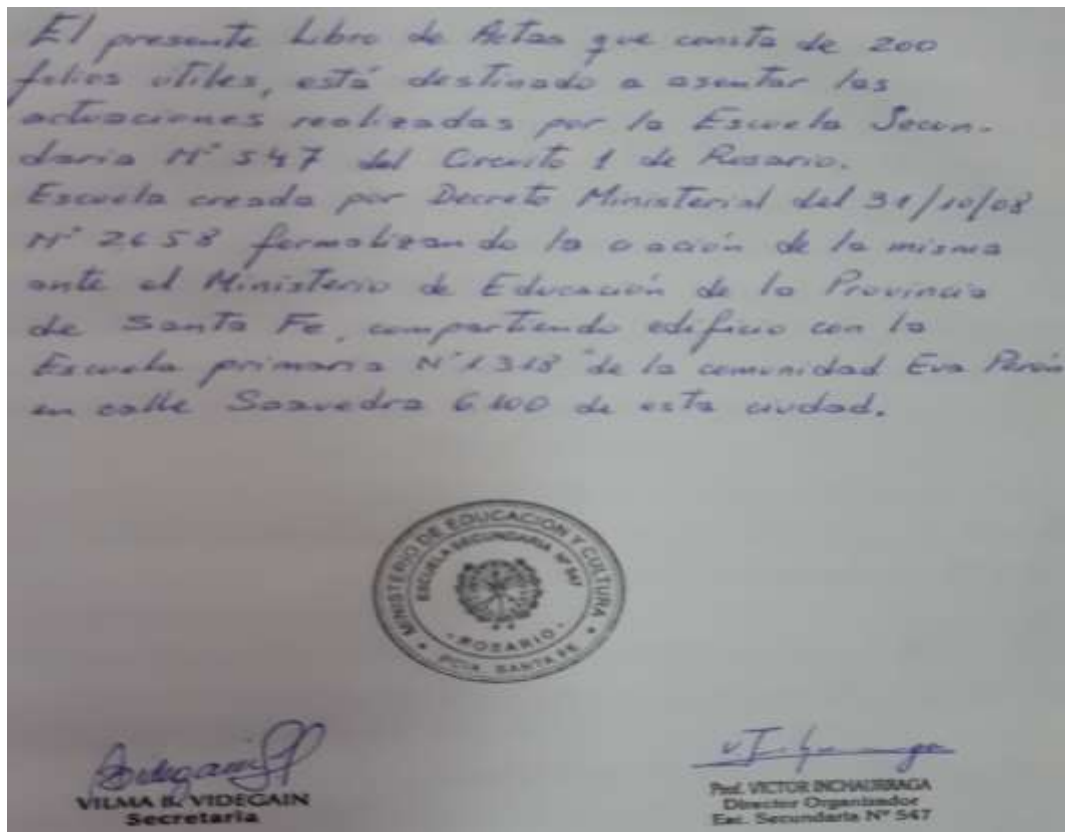 El presente Libro de Actas que consta de 200
folios útiles, está destinado a asentar las
actuaciones realizadas por la Escuela Secun-
daria N° 547 del Circuito 1 de Rosario.
Escuela creada por Decreto Ministerial del 31/10/08
N° 2658 formalizando la de la misma
ante el Ministerio de Educación de la Provincia
de Santa Fe, compartiendo edificio con la
Escuela primaria N° 1318 "de la comunidad Eva Perón
en calle Saavedra 6100 de esta ciudad.
MINISTERIO DE EDUCACIÓN Y CULTURA
ESCUELA SECUNDARIA N° 547
ROSARIO
PCIA. SANTA FE
VILMA B. VIDEGAIN
Secretaria
Prof. VICTOR INCHAURRAGA
Director Organizador
Esc. Secundaria N° 547